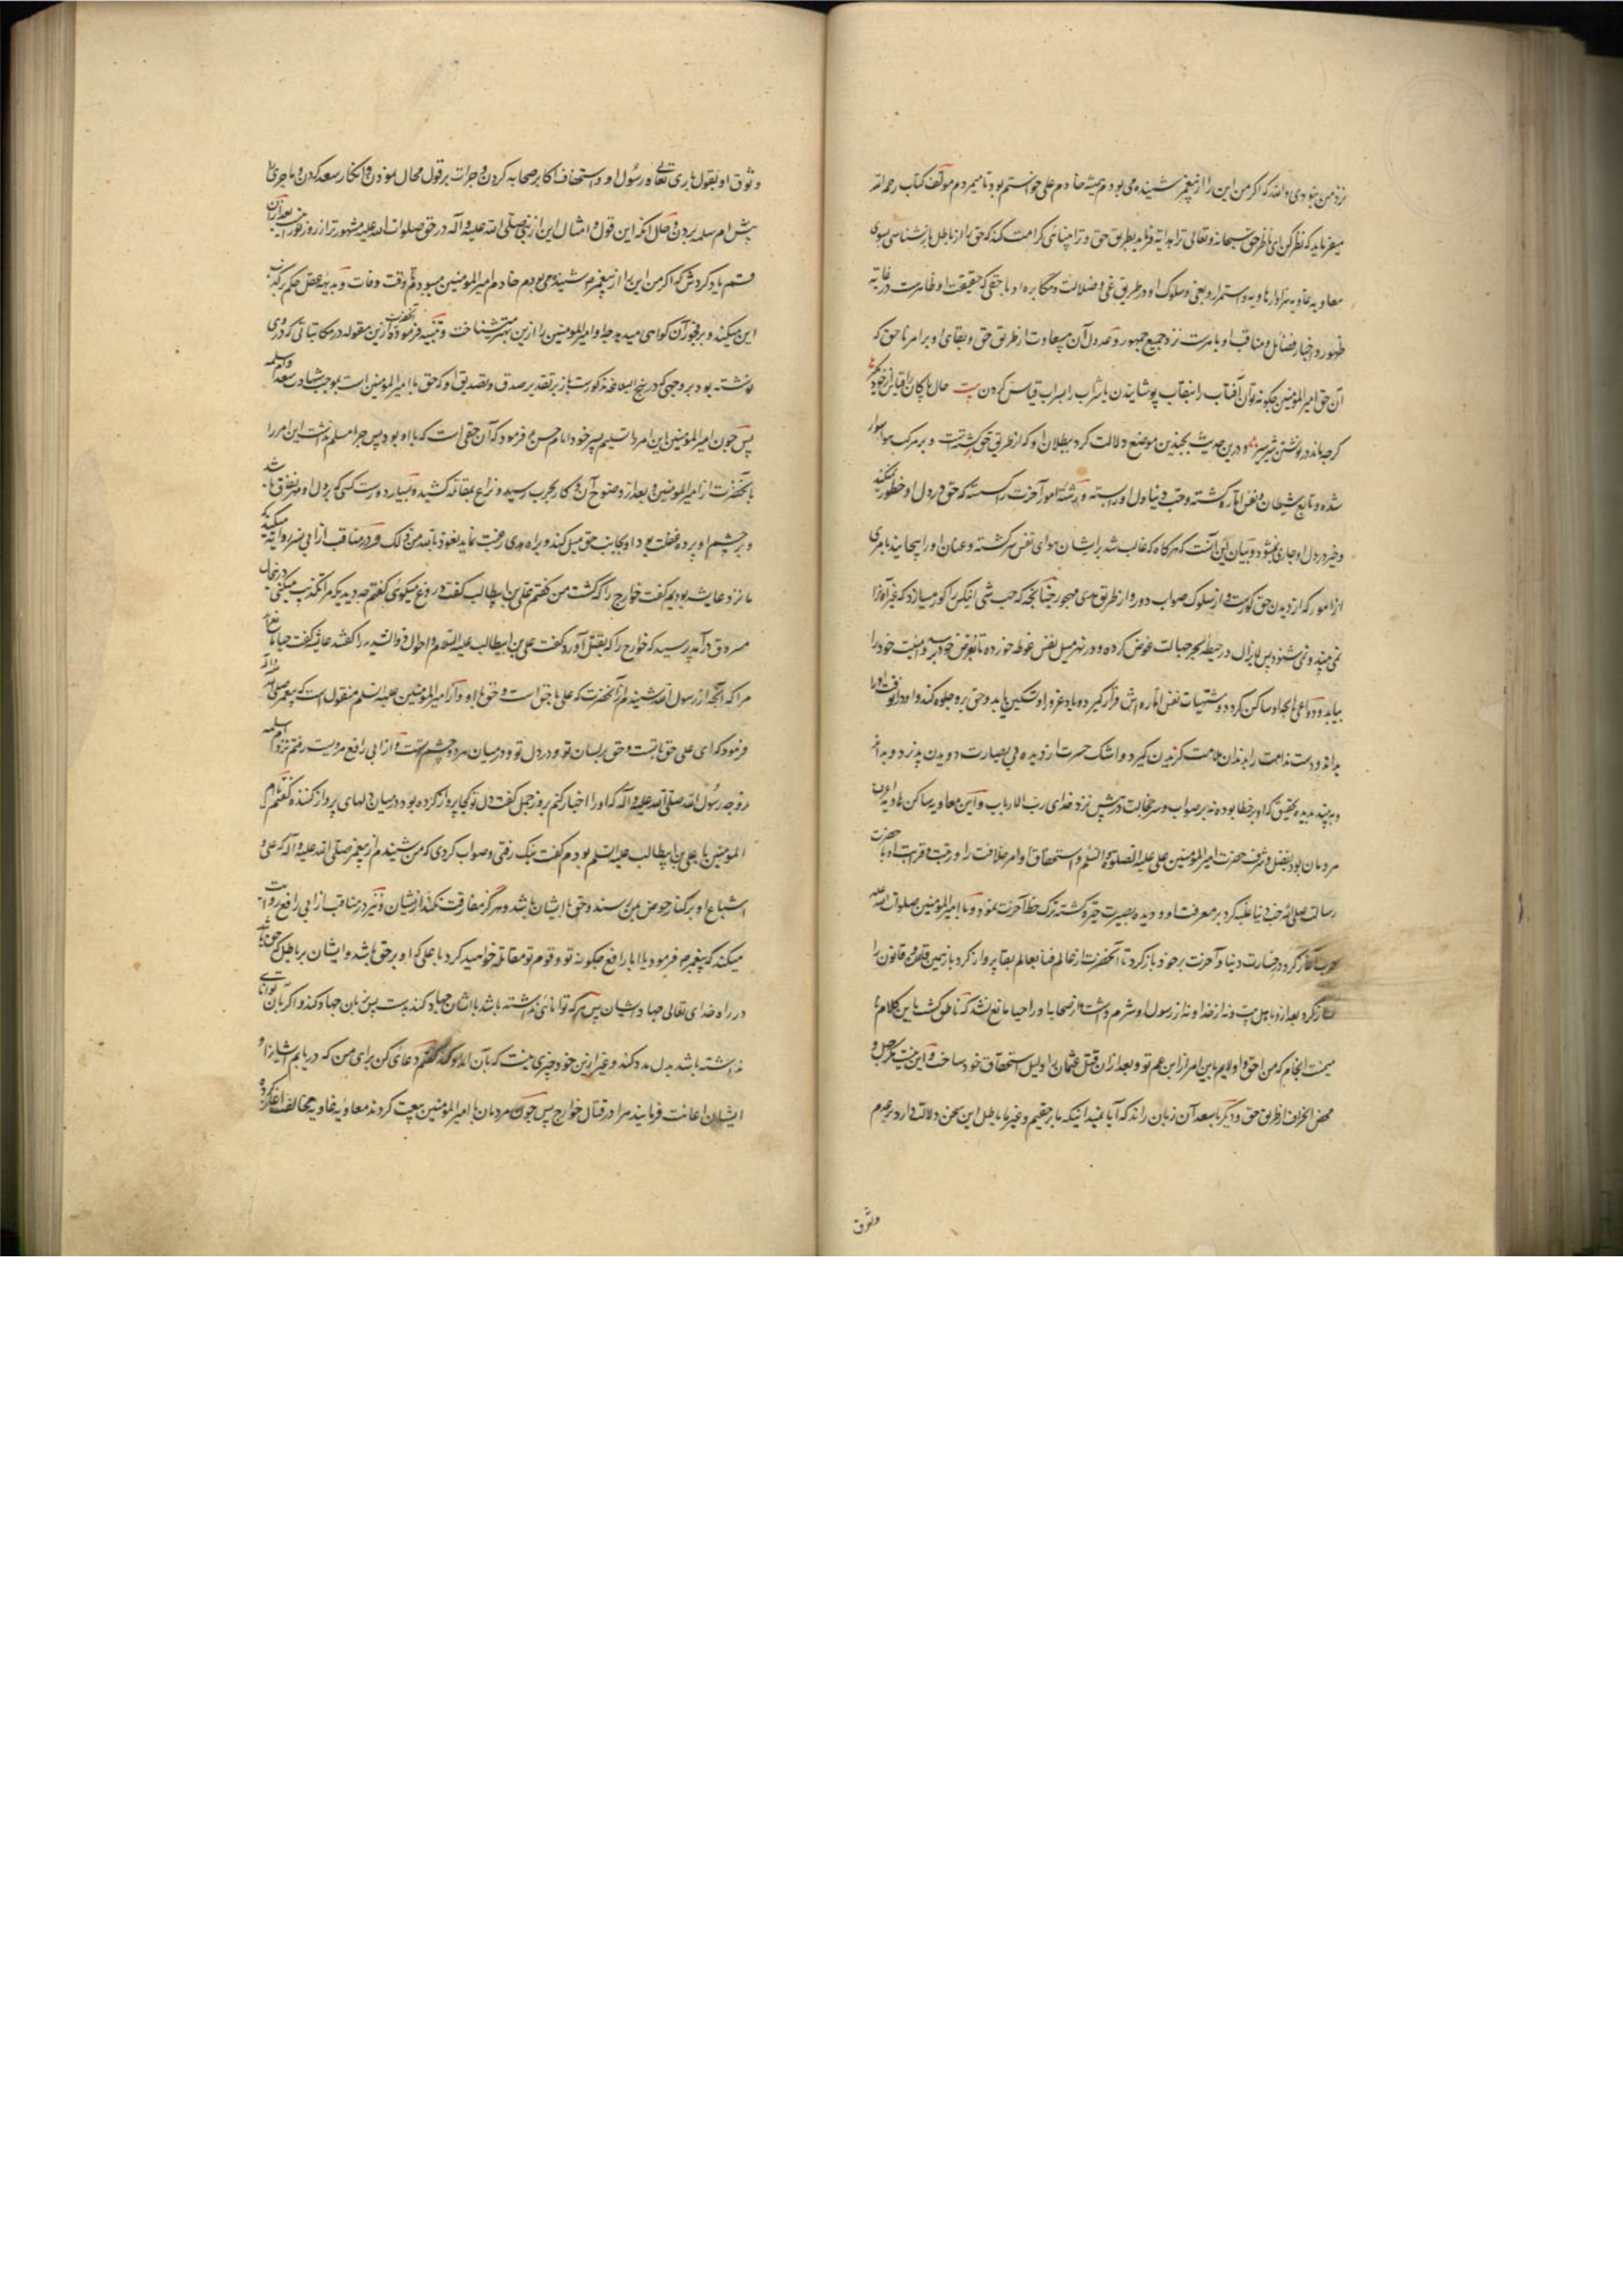 نزد من نبودی والله که اکر من این را از پیغمبر شنیده می بودم همیشه خادم علی خواستم بود تا میمردم مولف کتاب رحمه الله
میفرماید که نظر کن ای ناظر حق سبحانه و تعالی ترا هدایه فرماید بطریق حق و ترا بینایی کرامت کند که حق را از باطل بازشناسی بسوی
معاویه غاویه و استمرار و بغی و سلوک او در طریق غی و ضلالت و مکابره او با حقی که حقیقت او ظاهرست در غایه
ظهور و اخبار فضایل و مناقب او باهرست نزد جمیع جمهور و عدول آن بی سعادت از طریق حق و بقای او بر امر ناحق که
آن حق امیرالمؤمنین چکونه توان آفتاب را بنقاب پوشانیدن یا شراب را بسراب قیاس کردن بیت حال پاکان را قیاس از خود مگیر
کرچه ماند در نوشتن شیر شیر و درین حدیث بچندین موضع دلالت کرد ببطلان او که از طریق حق کشتست و بر مرکب هوا سوار
شده و تابع شیطان و نفس اماره کشته و حب دنیا دل او را بسته و رشته امور آخرت را کسسته که حق در دل او خطور نمیکند
و خیر در دل او جاری نمیشود و بیان این آنست که هرکاه که غالب شد بر ایشان هوای نفس سرکشته و عنان او را پیچانید بامری
از امور که از دیدن حق کورست و از سلوک صواب دور و از طریق هدی مهجور چنانچه که حب شی انکس را کور میسازد که غیر آنرا
نمی بیند و نمی شنود پس لایزال در حیطه بحر جهالت خوض کرده و در نهر میل نفس غوطه خورده تا بغرض خود برسد و منیت خود را
بیابد و دواعی انجا ساکن کردد و مشتهیات نفس اماره اش قرار کیرد و باد غرور او تسکین یابد و حق برو جلوه کند و او در انوقت
بداند و دست ندامت را بدندان ملامت کزیدن کیرد و اشک حسرت از دیده بی بصارت دویدن پذیرد و بداند
و ببیند بدیده تحقیق که او بر خطا بوده نه بر صواب و سر خجالت در پیش نزد خدای رب الارباب و این معاویه ساکن هاویه اعرف
مردمان بود بفضل و شرف حضرت امیرالمؤمنین علی علیه الصلوة والسلم و استحقاق او امر خلافت را و رتبت و قربت او با حضرت
رسالت صلی الله حب دنیا غلبه کرد بر معرفت او و دیده بصیرت خیره کشته ترک حظ آخرت نمود و با امیرالمؤمنین صلوات الله علیه
حرب آغاز کرد و در خسارت دنیا و آخرت بر خود باز کرد تا آنحضرت از عالم فنا بعالم بقا پرواز کرد
میمنت انجام که من احق و اولایم باین امر از ابن عم تو و بعد از ان قتل عثمان را دلیل استحقاق خود ساخت و این نیست مکر جهل و
محض انحراف از طریق حق و دیکر با سعد آن زبان راند که آیا نمیدانیکه ما بر حقیم و غیر ما باطل این سخن دلالت دارد بر عدم
وثوق
وثوق او بقول باری تعالی و رسول او و استخفاف اکابر صحابه کردن و جرات بر قول محال نمودن و انکار سعد کردن و ماجری را
پیش ام سلمه بردن و حال آنکه این قول و امثال این از نبی صلی الله علیه و آله در حق صلوات الله علیه مشهورتر از روز نورانیست بعد ازان
قسم یاد کردنش که اکر من این را از پیغمبر شنیده می بودم خادم امیرالمؤمنین میبودم تا وقت وفات و بدیهه عقل حکم بر کذب
این میکند و بر فجور آن کواهی میدهد چه او امیرالمؤمنین را ازین بهتر میشناخت و تنبیه فرموده آنحضرت ازین مقوله در مکاتباتی که بوی
نوشته بود بر وجهی که در نهج البلاغه مذکورست باز بر تقدیر صدق و تصدیق او که حق با امیرالمؤمنین است بموجب شهادت سعد و ام سلمه
پس چون امیرالمؤمنین این امر را تسلیم پسر خود امام حسن ع فرمود که آن حقی است که با او بود پس چرا مسلم نداشت این امر را
بآنحضرت از امیرالمؤمنین و بعد از وضوح آن و کار بحرب رسید و نزاع بمقاتله کشید و بسیار دورست کسی که بر دل او مهر نفاق باشد
و بر چشم او پرده غفلت بود او بجانب حق میل کند و براه هدی رغبت نماید نعوذ بالله من ذلک و در مناقب از ابی بسر روایه میکند که
ما نزد عایشه بودیم کفت خوارج را که کشت من کفتم علی بن ابیطالب کفت دروغ میکوئی کفتم چه دیدید که مرا تکذیب میکنی در انحال
مسروق درآمد پرسید که خوارج را که بقتل آورد کفت علی بن ابیطالب علیه السلام و احوال ذو الثدیه را کفتند عایشه کفت حیا مانع نیست
مرا که آنچه از رسول الله شنیدم از آنحضرت که علی با حق است و حق با او و از امیرالمؤمنین علیه السلم منقول است که پیغمبر صلی الله علیه و آله
فرمود که ای علی حق با تست و حق بر لسان تو و در دل تو و در میان هر دو چشم تست و از ابی رافع مرویست رفتم نزد ام سلمه
زوجه رسول الله صلی الله علیه و آله که او را اخبار کنم بروز جمل کفت دل تو کجا پرواز کرده بود در میان دلهای پرواز کننده کفتم با امیر
المؤمنین علی بن ابیطالب علیه السلم بودم کفت نیک رفتی و صواب کردی که من شنیدم از پیغمبر صلی الله علیه و آله که علی و
اشیاع او بر کنار حوض بمن برسند و حق با ایشان باشد و هرکز مفارقت نکند از ایشان و نیز در مناقب از ابی رافع روایت
میکند که پیغمبر ص فرمود یا ابا رافع چکونه تو و قوم تو مقاتله خواهید کرد با علی که او بر حق باشد و ایشان بر باطل که حق باشد
در راه خدای تعالی جهاد ایشان پس هرکه توانائی نداشته باشد با ایشان جهاد کند بدست پس بزبان جهاد کند و اکر بآن توانائی
نداشته باشد بدل مدد کند و غیر ازین خود چیزی نیست که بآن کفتم دعائی کن برای من که دریابم ایشانرا و
ایشان اعانت فرمایند مرا در قتال خوارج پس چون مردمان با امیرالمؤمنین بیعت کردند معاویه غاویه مخالفت آغاز کرده